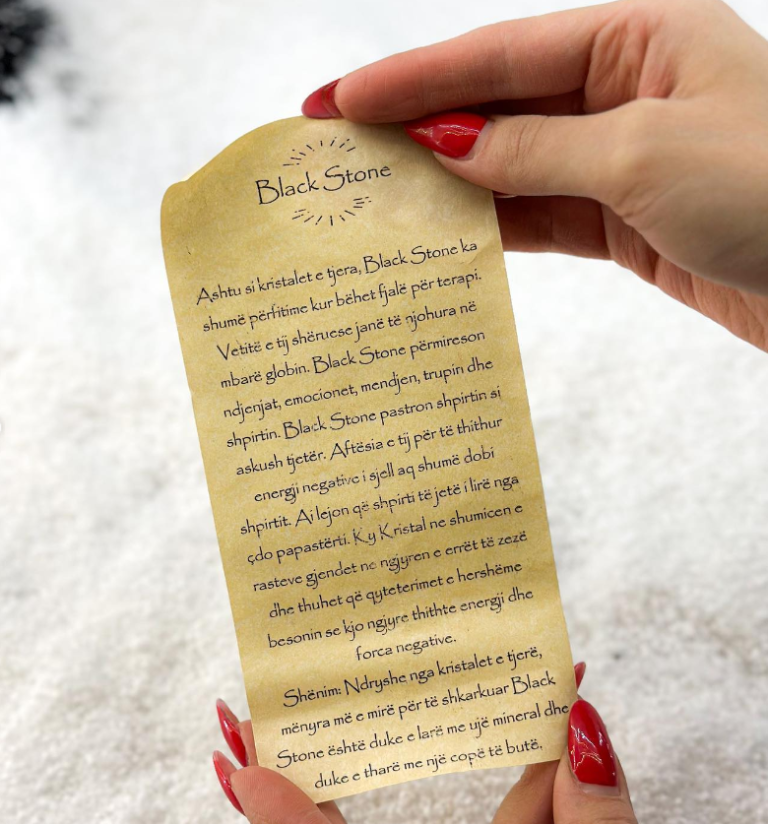 Black Stone
Ashtu si kristalet e tjera, Black Stone ka
shumë përfitime kur bëhet fjalë për terapi.
Vetitë e tij shëruese janë të njohura në
mbarë globin. Black Stone përmireson
ndjenjat, emocionet, mendjen, trupin dhe
shpirtin. Black Stone pastron shpirtin si
askush tjetër. Aftësia e tij për të thithur
energji negative i sjell aq shumë dobi
shpirtit. Ai lejon që shpirti të jetë i lirë nga
çdo papastërti. Ky Kristal ne shumicen e
rasteve gjendet ne ngjyren e errët të zezë
dhe thuhet që qyteterimet e hershëme
besonin se kjo ngjyre thithte energji dhe
forca negative.
Shënim: Ndryshe nga kristalet e tjerë,
mënyra më e mirë për të shkarkuar Black
Stone është duke e larë me ujë mineral dhe
duke e tharë me një copë të butë,